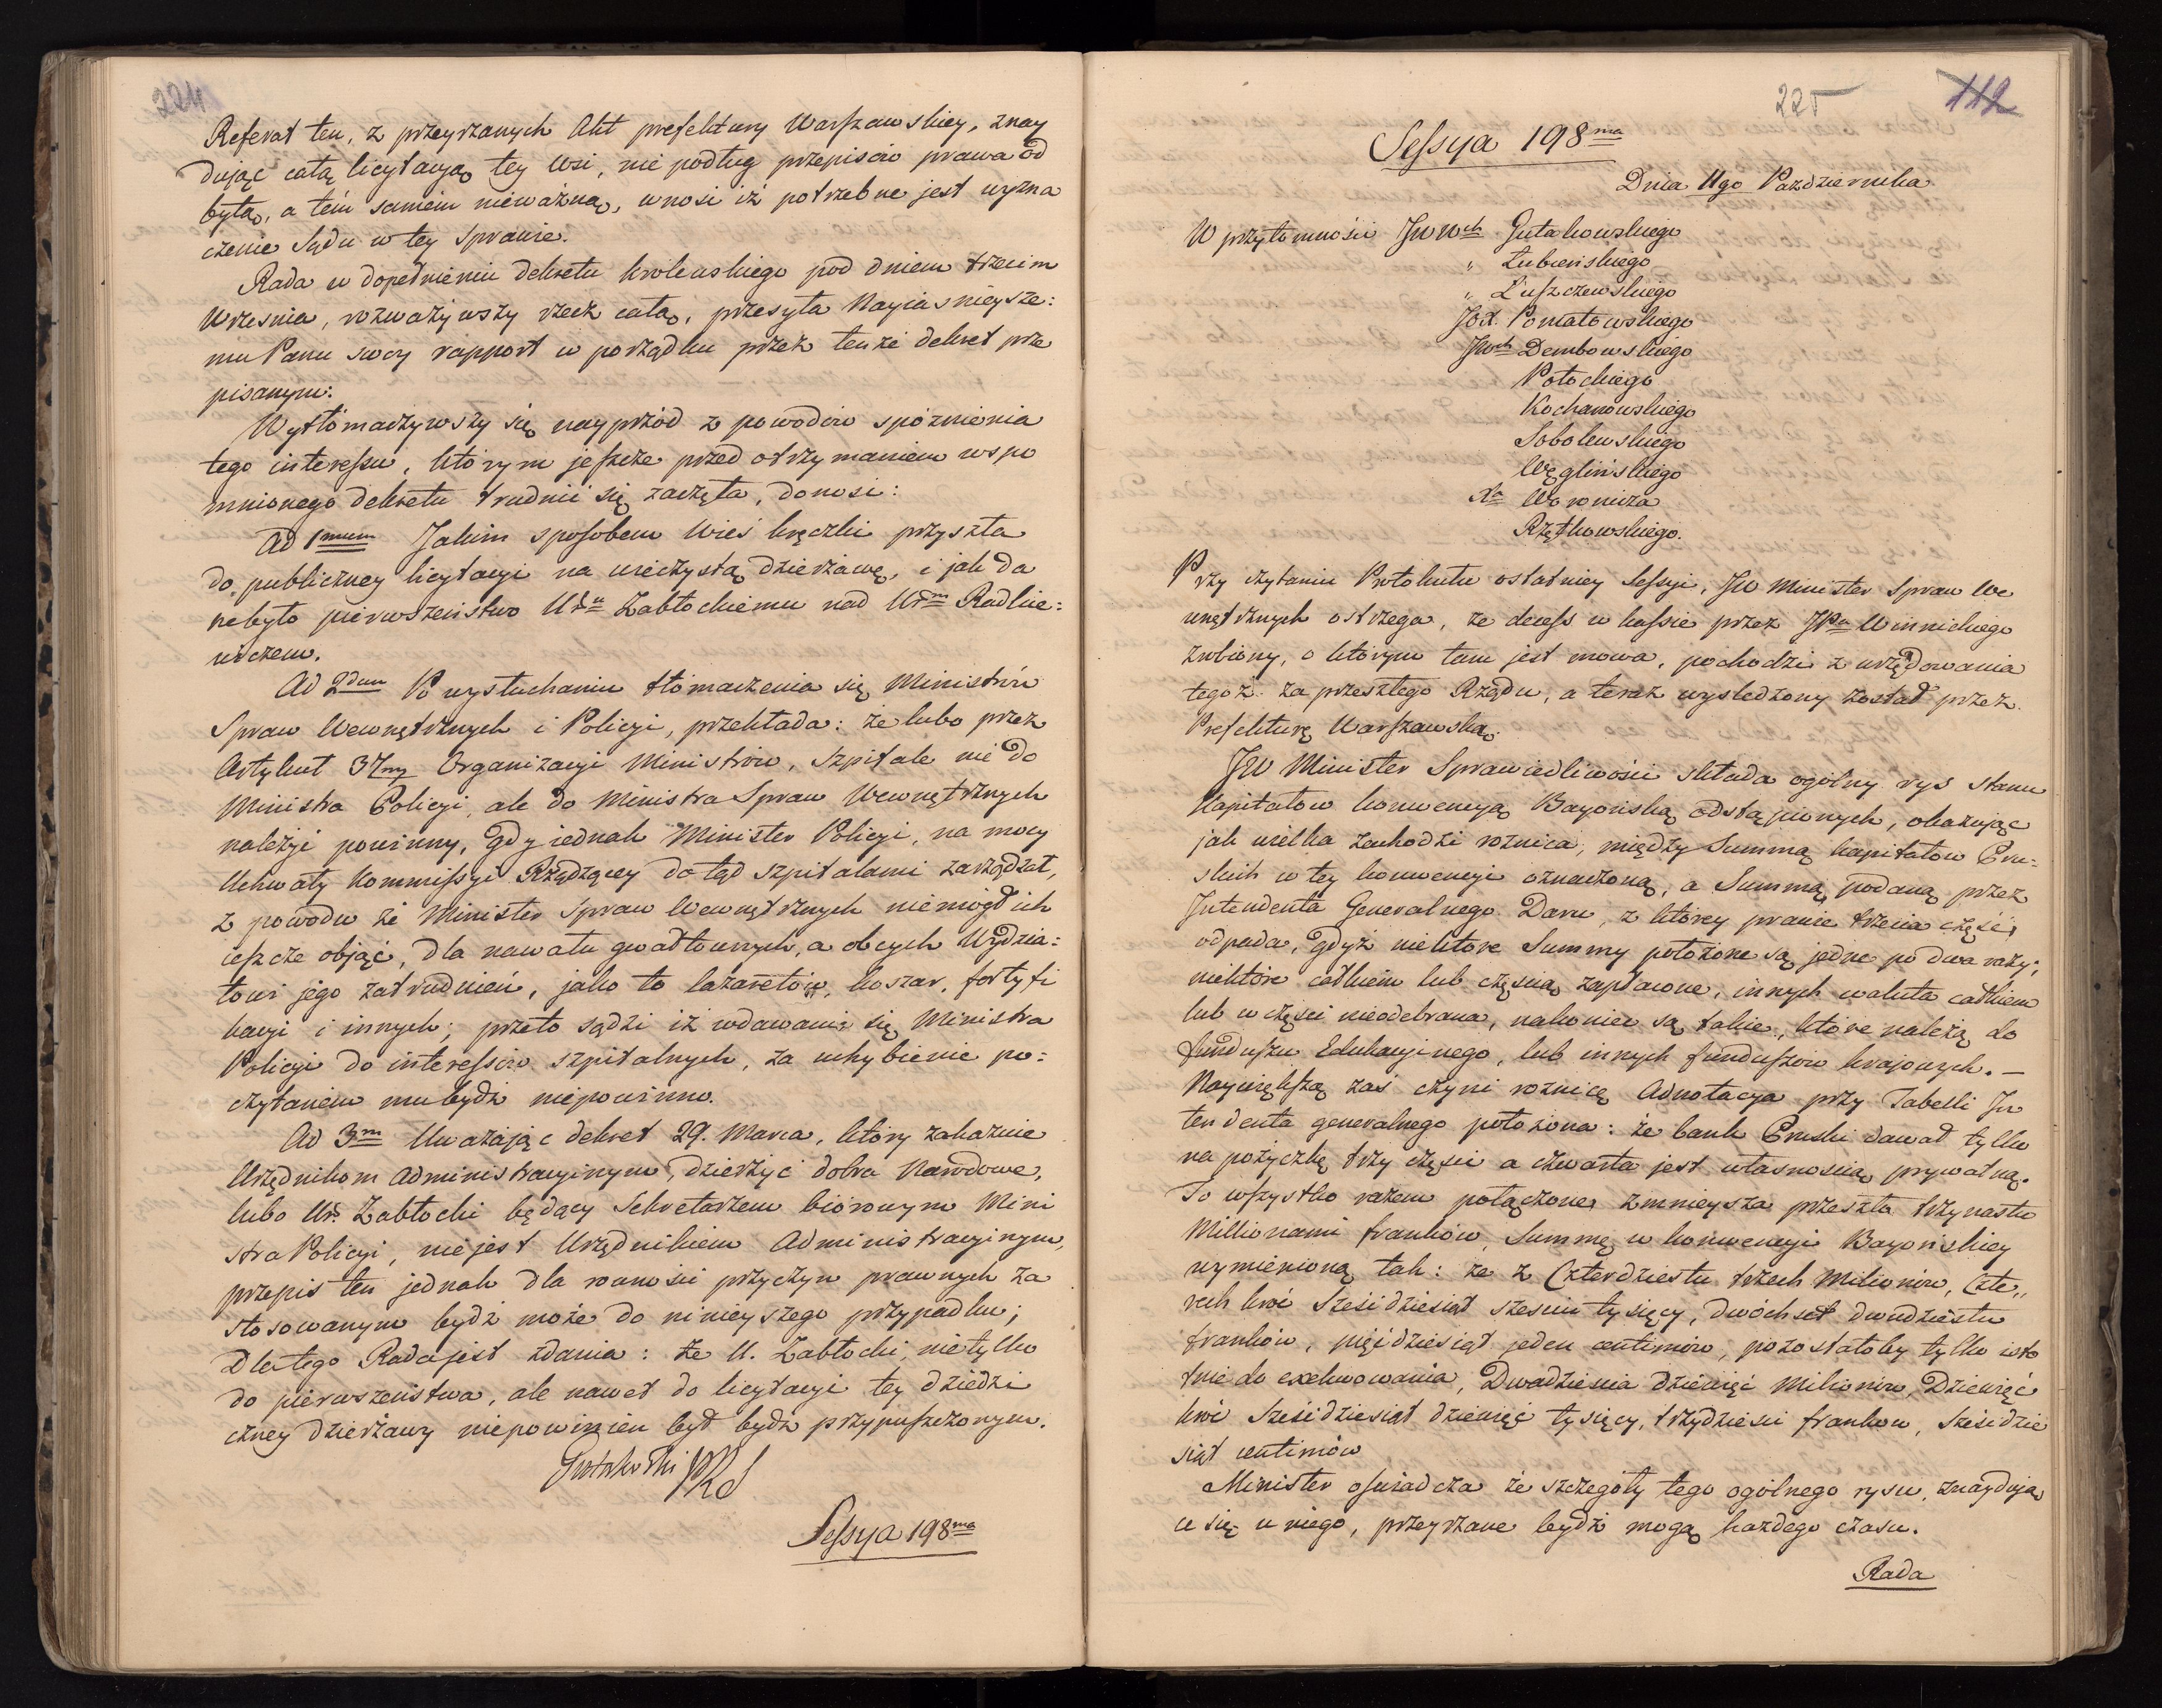 224
Referat ten, z przeyrzanych Akt prefektury Warszawskiey, znay
dując całą licytacyą tey Wsi, nie podług przepisów prawa od
bytą, a tém samem nieważną, wnosi iż potrzebne jest wyzna
czenie Sądu w tey Sprawie.
Rada w dopełnieniu dekretu królewskiego pod dniem trzecim
Września, rozważywszy rzecz całą, przesyła Nayiasnieysze:
mu Panu swoy rapport w porządku przez tenże dekret prze
pisanym:
Wytłómaczywszy się nayprzód z powodów spóznienia
tego interessu, którym jeszcze przed otrzymaniem wspo
mnionego dekretu trudnić się zaczęła, donosi:
Ad 1mum Jakim sposobem Wieś Kręczki przyszła
do publiczney licytacyi na wieczystą dzierżawę, i jak da
ne było pierwszeństwo Uru Zabłockiemu nad Urm Radkie:
wiczem.
Ad 2dum Po wysłuchaniu tłómaczenia się Ministrów
Spraw Wewnętrznych i Policyi, przekłada: że lubo przez
Artykuł 37my Organizacyi Ministrów, szpitale nie do
Ministra Policyi, ale do Ministra Spraw Wewnętrznych
należyć powinny, gdy jednak Minister Policyi, na mocy
Uchwały Kommissyi Rządzącey dotąd szpitalami zarządzał,
z powodu że Minister Spraw Wewnętrznych nie mógł ich
ieszcze objąć, dla nawału gwałtownych, a obcych Wydzia:
łowi jego zatrudnień, jako to lazaretów, koszar, fortyfi
kacyi i innych; przeto sądzi iż wdawanie się Ministra
Policyi do interessów szpitalnych, za uchybienie po:
czytanem mu bydź niepowinno.
Ad 3m Uważając dekret 29. Marca, który zakazuie
Urzędnikom Administracyinym, dzierżyć dobra Narodowe,
lubo Ur. Zabłocki będący Sekretarzem biórowym Mini
stra Policyi, nie jest Urzędnikiem Administracyinym,
przepis ten jednak dla równości przyczyn prawnych za
stosowanym bydź może do ninieyszego przypadku;
dlatego Rada jest zdania: że U. Zabłocki, nie tylko
do pierwszeństwa, ale nawet do licytacyi tey dziedzi
czney dzierżawy niepowinien był bydz przypuszczonym.
Gutakowski PRS
Sessya 198ma
225
112
Sessya 198ma
Dnia 11go Pazdziernika
W przytomności JWWch Gutakowskiego
" Łubieńskiego
" Łuszczewskiego
JOX. Poniatowskiego
JWch Dembowskiego
Potockiego
Kochanowskiego
Sobolewskiego
Węglińskiego
Xa Woronicza
Rzętkowskiego.
Przy czytaniu Protokułu ostatniey Sessyi, JW Minister Spraw We
wnętrznych ostrzega, że decess w kassie przez JPa Winnickiego
zrobiony, o którym tam jest mowa, pochodzi z urzędowania
tegoż za przeszłego Rządu, a teraz wysledzony został przez
Prefekturę Warszawską.
JW Minister Sprawiedliwości składa ogólny rys stanu
Kapitałów konwencyą Bayońską odstąpionych, okazując
jak wielka zachodzi roznica, między Summą kapitałow Pru:
skich w tey konwencyi oznaczoną, a Summą, podaną przez
Intendenta Generalnego Daru, z którey prawie trzecia część
odpada, gdyż niektóre Summy położone są jedne po dwa razy;
niektóre całkiem lub częścią zapłacone, innych waluta całkiem
lub w części nieodebrana, nakoniec są takie, które należą do
funduszu Edukacyinego, lub innych funduszów krajowych. —
Naywiększą zaś czyni roznicę Adnotacya przy Tabelli In
tendenta generalnego położona: że bank Pruski dawał tylko
na pożyczkę trzy części a czwarta jest własnością prywatną.
To wszystko razem połączone, zmnieysza przeszło trzynastu
Millionami franków, Summę w konwencyi Bayońskiey
wymienioną tak: że z Czterdziestu trzech Milionów, Czte„
rech kroć Sześćdziesiąt szesciu tysięcy, dwóchset dwudziestu
franków, pięćdziesiąt jeden centimów, pozostałoby tylko isto
tnie do exekwowania, Dwadziescia dziewięć Milionów, Dziewięć
kroć Sześćdziesiąt dziewięć tysięcy, trzydzieści frankow, Sześćdzie
siąt centimów
Minister oświadcza że szczegóły tego ogólnego rysu, znayduią
ce się u niego, przeyrzane bydź mogą każdego czasu.
Rada